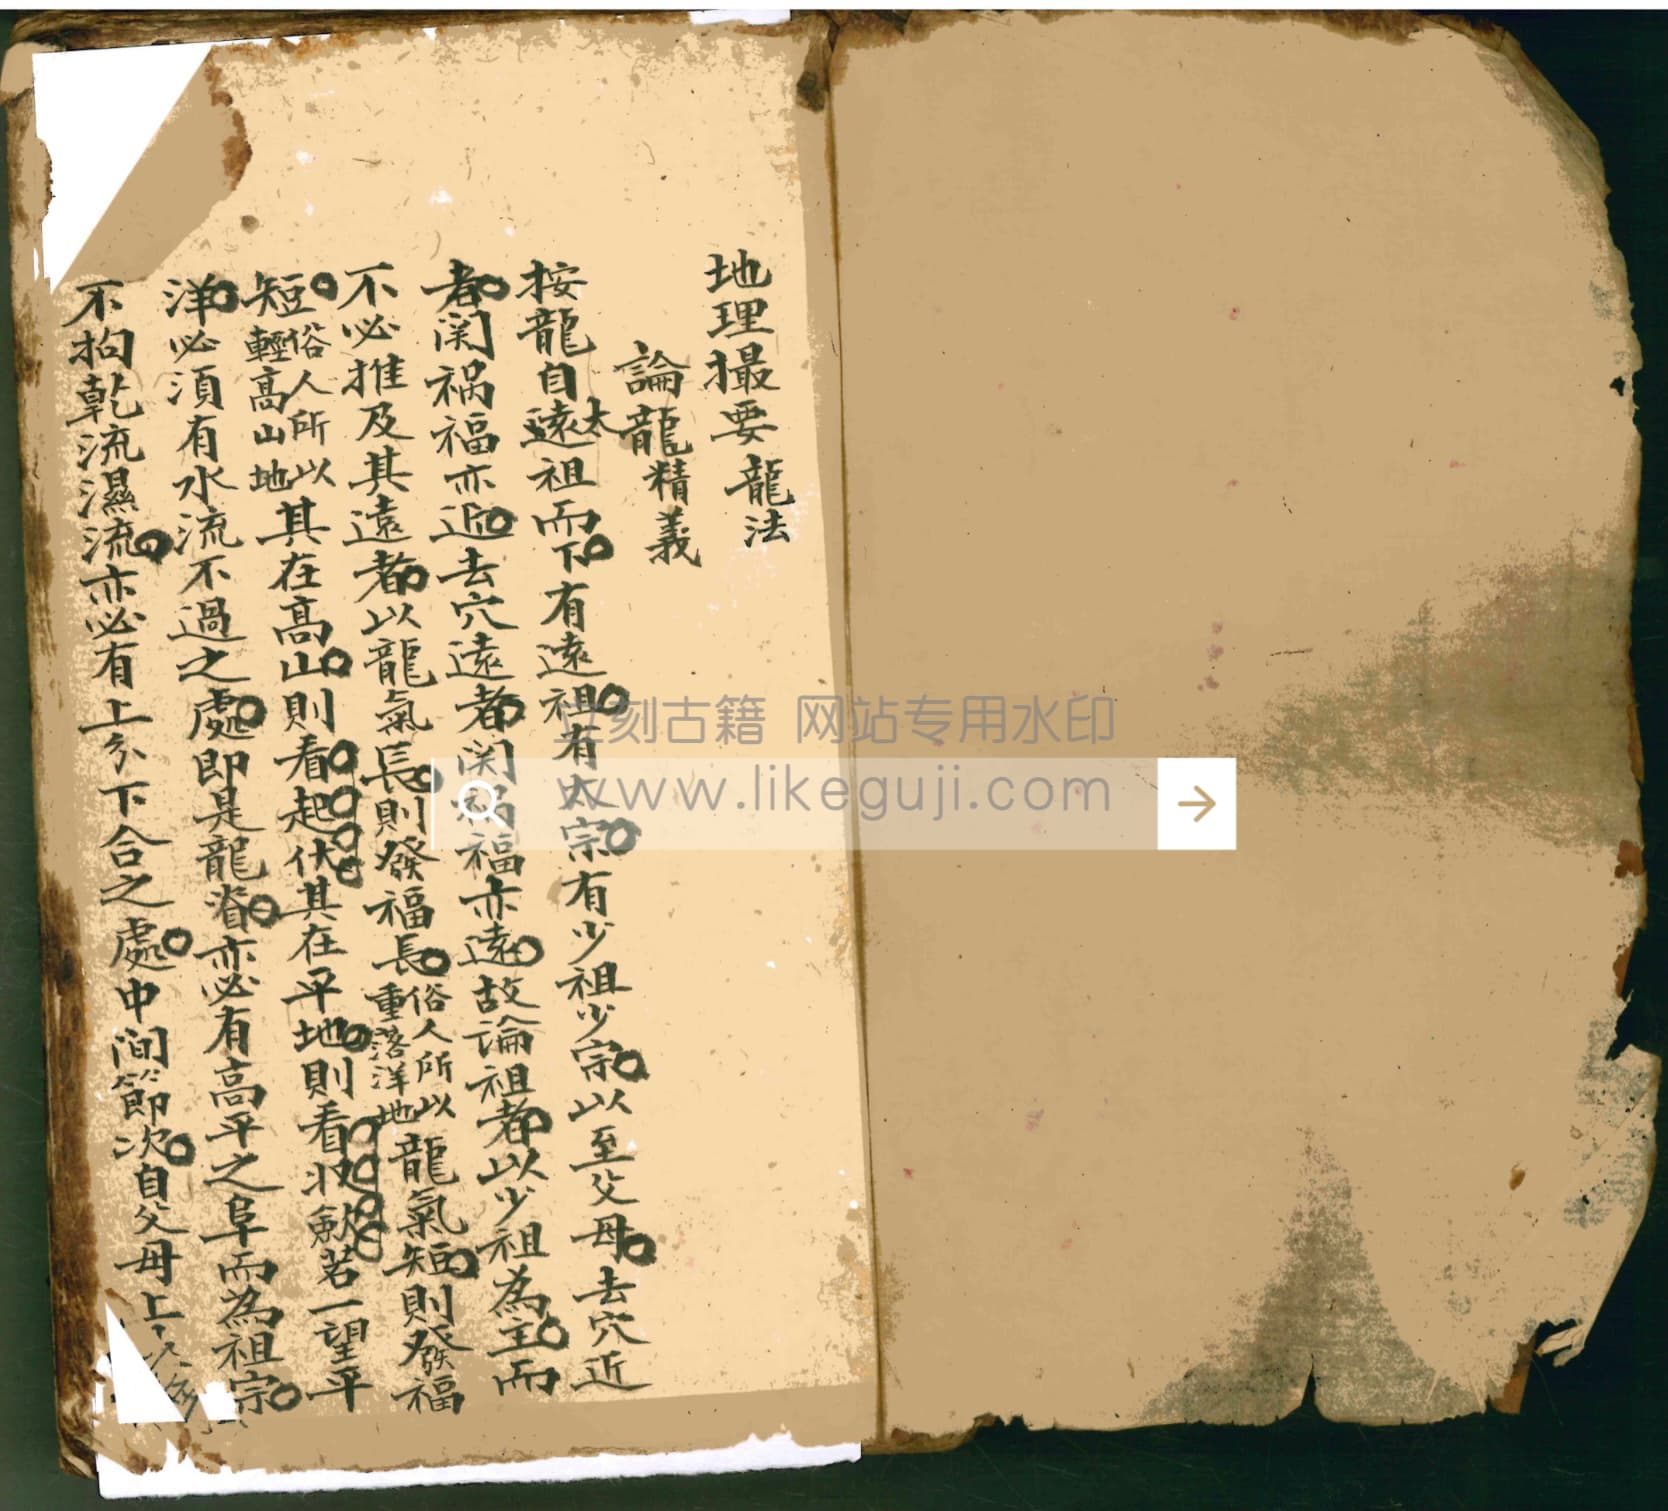 地理撮要 龍法
論龍精義
按龍自遠太祖而下有遠祖有太宗有少祖少宗以至父母去穴近
者関祸福亦近去穴遠者関祸福亦遠故論祖者以少祖為主而
不必推及其遠者以龍氣長則發福長俗人所以重落洋地龍氣短則發福
短俗人所以輕高山地其在高山則看起伏其在平地則看收歛若一望平
洋必須有水流不過之處即是龍脊亦必有高平之阜而為祖宗
不拘乾流濕流亦必有上分下合之處中间節次自父母上
立刻古籍 网站专用水印
www.likeguji.com